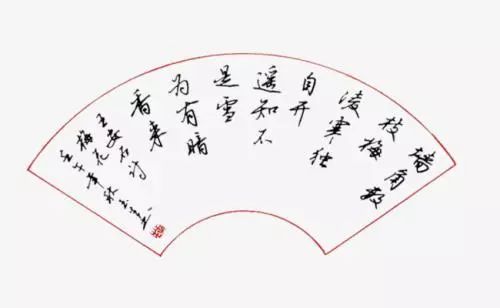 墙角数
枝梅
凌寒独
自开
遥知不
是雪
为有暗
香来
王安石诗
梅花
壬午年秋